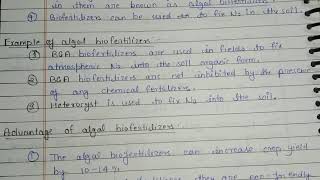 in them are known as algal biofertilizers
④ Biofertilizers can be used to fix N₂ in the soil.
Example of algal biofertilizers:
① BGA biofertilizers are used in fields to fix
atmospheric N₂ into the soil organic form.
② BGA biofertilizers are not inhibited by the presence
of any chemical fertilizers.
③ Heterocyst is used to fix N₂ into the soil.
Advantage of algal biofertilizers:
① The algal biofertilizers can increase crop yield
by 10-14%
they are eco-friendly